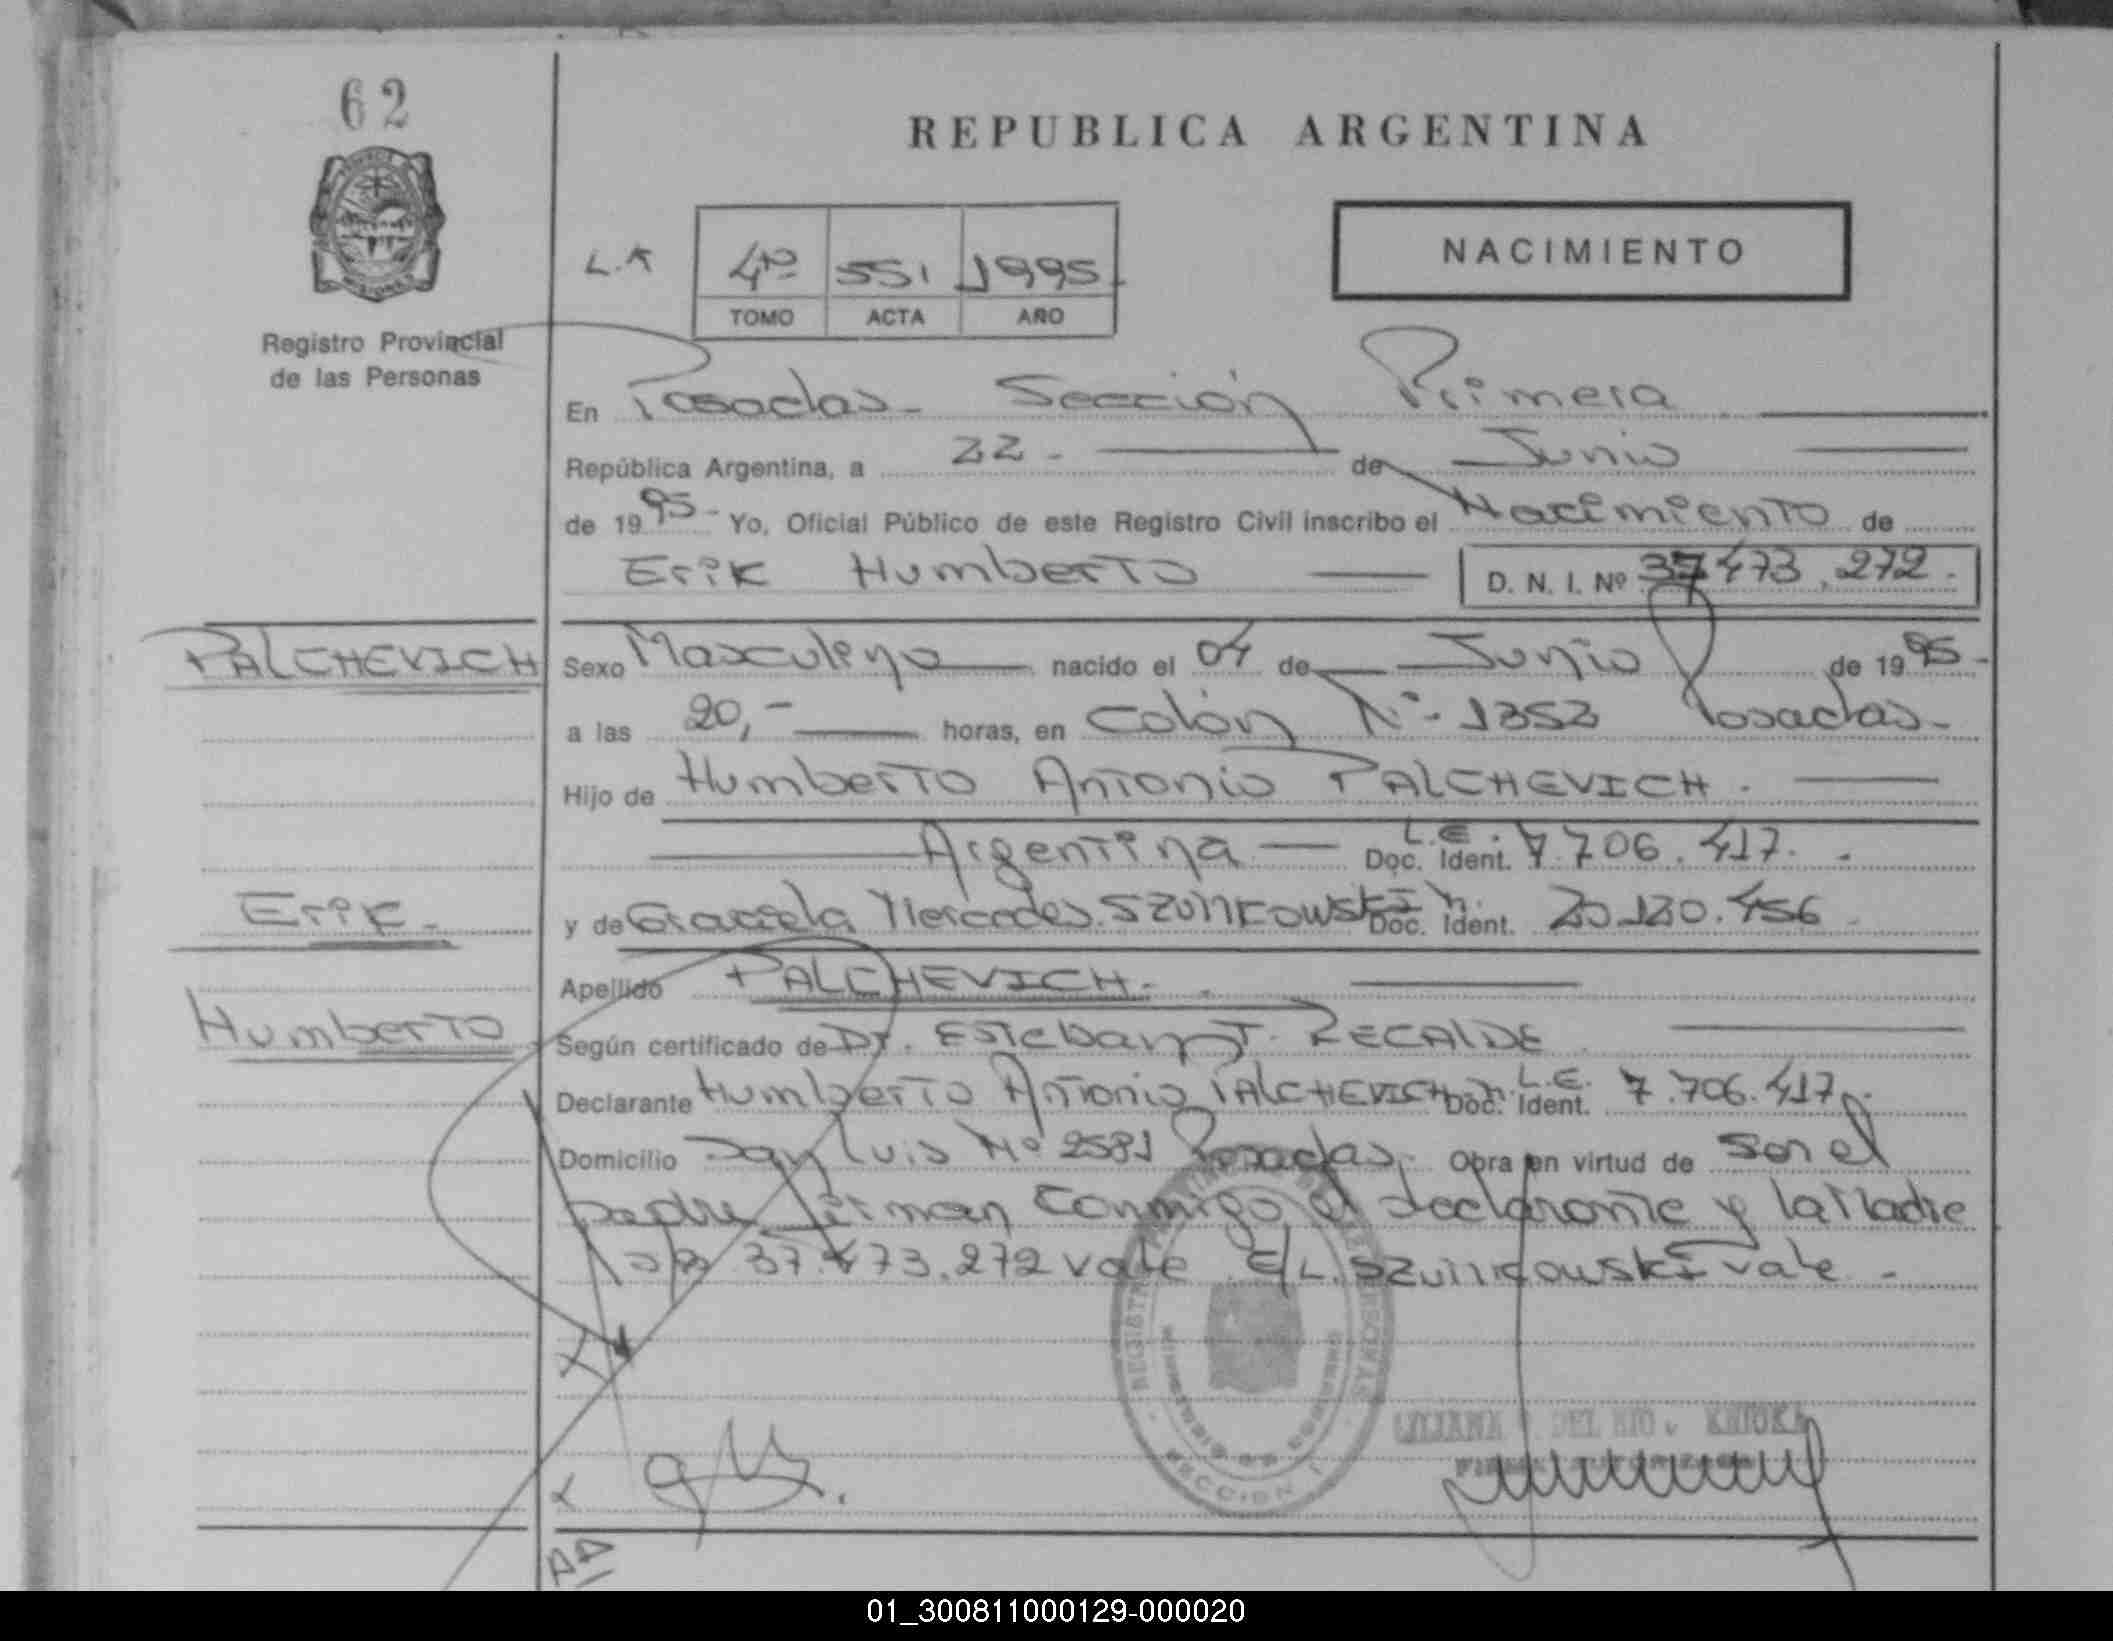 62
REPUBLICA ARGENTINA
NACIMIENTO
L.A 4º 551 1995
TOMO ACTA AÑO
Registro Provincial
de las Personas
En Posadas - Sección Primera
República Argentina, a 22 - de Junio
de 1995 - Yo, Oficial Público de este Registro Civil inscribo el Nacimiento de
Erik Humberto D. N. I. Nº 37 473.272.
PALCHEVICH
Sexo Masculino nacido el 04 de Junio de 1995 -
a las 20,- horas, en Colón Nº - 1353 Posadas -
Hijo de Humberto Antonio PALCHEVICH.
Argentina L.E. Doc. Ident. 7.706.417.
Erik -
y de Graciela Mercedes SZUINKOWSKI Doc. Ident. 20.120.456
Apellido PALCHEVICH.
Humberto
Según certificado de Dr. Esteban J. RECALDE
Declarante Humberto Antonio PALCHEVICH Doc. Ident. L.E. 7.706.417
Domicilio San Luis Nº 2581 Posadas. Obra en virtud de ser el
padre firman conmigo el declarante y la Madre
s/r 37.473.272 vale E/L. Szuinkowski vale -
REGISTRO PROVINCIAL DE LAS PERSONAS
MINISTERIO DE GOBIERNO
SECCION 1
LILIANA DEL RIO
FIRMA AUTORIZADA
01_300811000129-000020